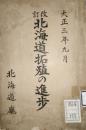 大正三年九月
改訂
北海道拓殖の進歩
北海道廳